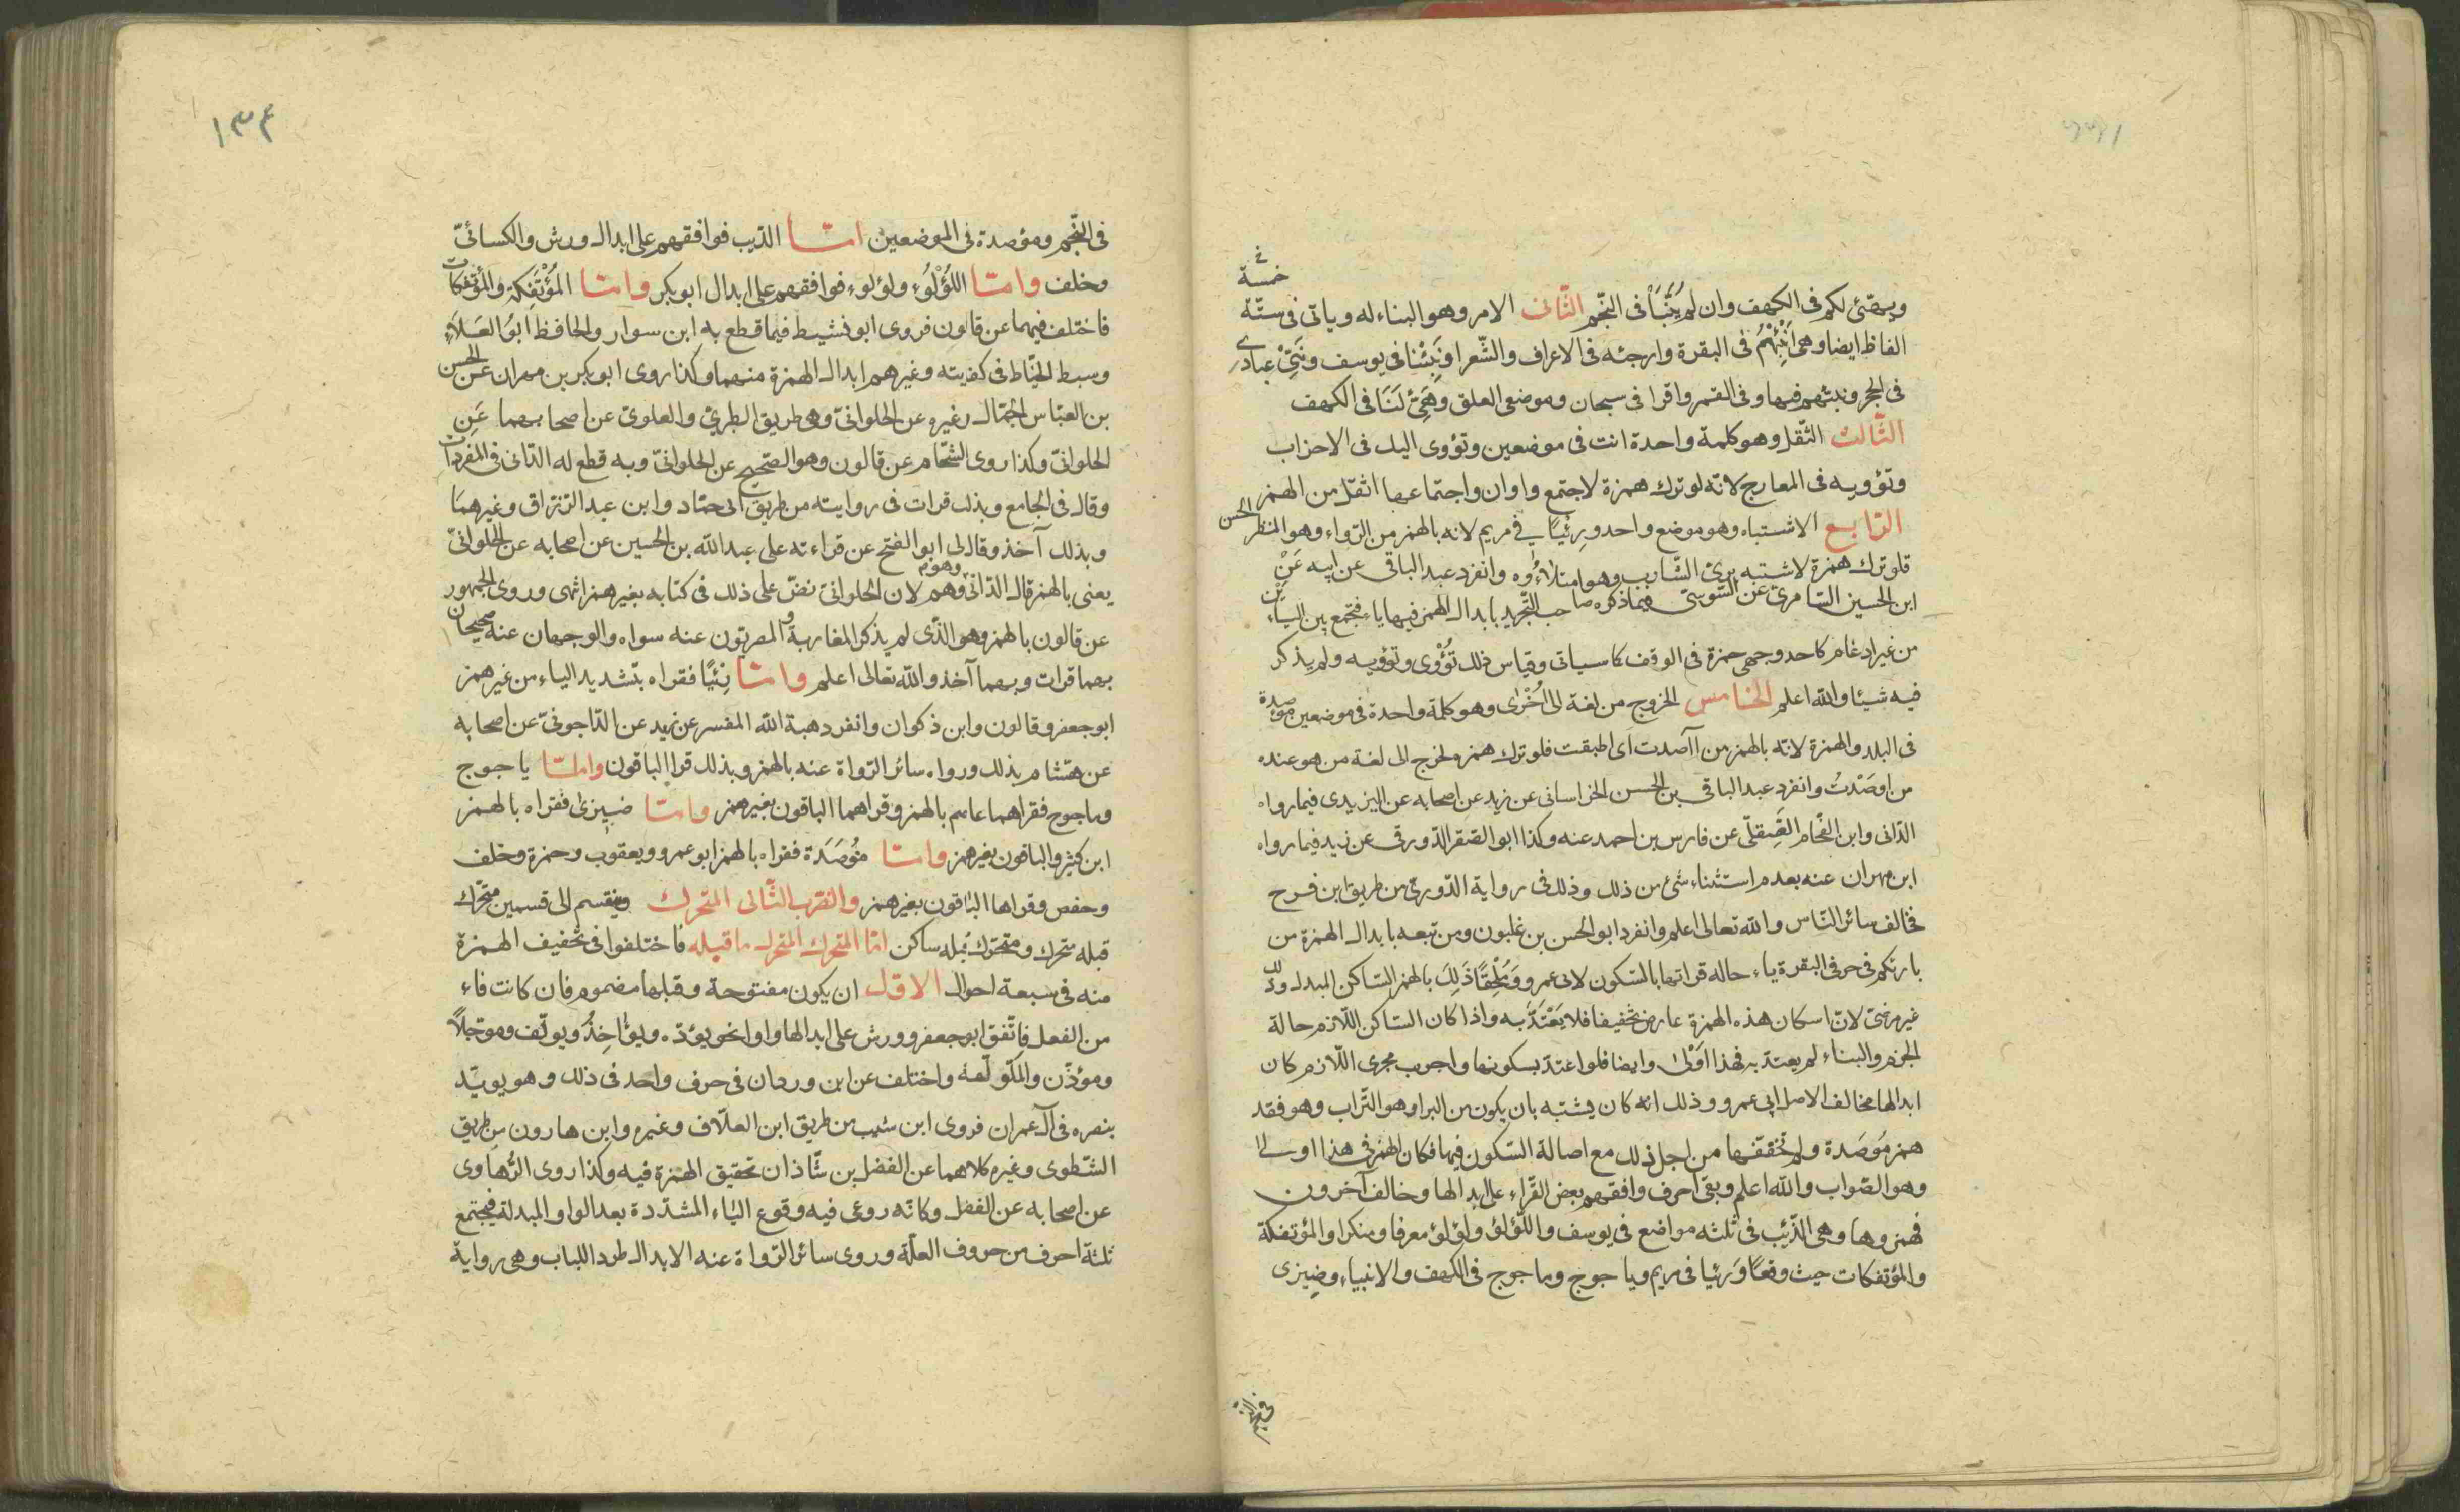 خمسة
ويهيّئ لكم فى الكهف وان لم يُنَبَّأْ فى النّجم الثّانى الامر وهو البناء له وياتى فى ستّة
الفاظ ايضا وهى اَنْبِئْهُمْ فى البقرة وارجئه فى الاعراف والشّعرا ونَبِّئْنا فى يوسف ونَبِّئْ عبادى
فى الحجر ونبئهم فيها وفى القمر واقرا فى سبحان وموضعى العلق وهَيِّئْ لَنَا فى الكهف
الثّالث الثّقل وهو كلمة واحدة اتت فى موضعين وتؤوى اليك فى الاحزاب
وتؤويه فى المعارج لانّه لو ترك همزة لاجتمع واوان واجتماعهما اثقل من الهمز
الرّابع الاشتباه وهو موضع واحد ورِئيًا فى مريم لانه بالهمز من الرّواء وهو المنظر الحسن
فلو ترك همزة لاشتبه برىّ الشّارب وهو امتلاؤُه وانفرد عبد الباقى عن ابيه عَنْ
ابن الحسين السّامرىّ عن السّوسىّ فيما ذكره صاحب التّجريد بابدال الهمز فيها ياء فتجمع بين اليائين
من غير ادغام كاحد وجهى حمزة فى الوقف كما سياتى وقياس ذلك تُؤْوى وتؤويه ولم يذكر
فيه شيئا والله اعلم الخامس الخروج من لغة الى اُخرٰى وهو كلمة واحدة فى موضعين مؤصدة
فى البلد والهمزة لانّه بالهمز من اآصدت اى اطبقت فلو ترك همزه لخرج الى لغة من هو عنده
من اوصَدْتُ وانفرد عبد الباقى بن الحسن الخراسانى عن زيد عن اصحابه عن اليزيدى فيما رواه
الدّانى وابن الفحّام الصِّقِلّى عن فارس بن احمد عنه وكذا ابو الصّقر الدّورقى عن زيد فيما رواه
ابن مهران عنه بعدم استثناء شئ من ذلك وذلك فى رواية الدّورىّ من طريق ابن فرح
فخالف سائر النّاس والله تعالى اعلم وانفرد ابو الحسن بن غلبون ومن تبعه بابدال الهمزة من
بارئكم فى حرفى البقرة ياء حالة قراتها بالسّكون لابى عمرو ومُلْحِقًا ذَلِكَ بالهمز السّاكن المبدل وذلك
غير مرضىّ لانّ اسكان هذه الهمزة عارض تخفيفا فلا يَعْتَدُّ به واذا كان السّاكن اللّازم حالة
الجزم والبناء لم يعتدّ به فهذا اَوْلٰى وايضا فلو اعتدّ بسكونها واجريت مجرى اللّازم كان
ابدالها مخالف الاصل ابى عمرو وذلك انه كان يشتبه بان يكون من البرا وهو التّراب وهو فقد
همز مُوصَدة ولم تخفّفها من اجل ذلك مع اصالة السّكون فيها فكان الهمز فى هذا اولى
وهو الصّواب والله اعلم وبقى احرف وافقهم بعض القرّاء على ابدالها وخالف آخرون
فهمزوها وهى الذّئب فى ثلثه مواضع فى يوسف واللّؤلؤ ولؤلؤ معرفا ومنكرا والمؤتفكة
والمؤتفكات حيث وقعًا ورئيا فى مريم وياجوج وماجوج فى الكهف والانبياء وضيزى
١٣۴
فى النّجم ومؤصدة فى الموضعين امّا الذّيب فوافقهم على ابدال ورش والكسائىّ
وخلف وامّا اللُؤْلُوُ ولؤلوء فوافقهم على ابدال ابو بكر وامّا المُؤْتَفِكة والمؤتفكات
فاختلف فيهما عن قالون فروى ابو نشيط فيما قطع به ابن سوار والحافظ ابوُ العَلَاء
وسبط الخيّاط فى كفايته وغيرهم ابدال الهمزة منهما وكذا روى ابو بكر بن مهران عن الحسن
بن العبّاس الجمّال وغيره عن الحلوانىّ وهى طريق الطبرىّ والعلوىّ عن اصحابهما عَنِ
الحلوانىّ وكذا روى الشّحّام عن قالون وهو الصّحيح عن الحلوانىّ وبه قطع له الدّانى فى المفردات
وقال فى الجامع وبذلك قرات فى روايته من طريق ابى حمّاد وابن عبد الرّزاق وغيرهمَا
وبذلك آخذ وقال لى ابو الفتح عن قراءته على عبد الله بن الحسين عن اصحابه عن الحلوانىّ
يعنى بالهمز قال الدّانى وهو وهم لان الحلوانىّ نصّ على ذلك فى كتابه بغير همز انتهى وروى الجمهور
عن قالون بالهمز وهو الذّى لم يذكر المغاربة والمصريّون عنه سواه والوجهان عنه صحيحان
بهما قرات وبهما آخذ والله تعالى اعلم وامّا رِئيًا فقراه بتشديد الياء من غير همز
ابو جعفر وقالون وابن ذكوان وانفرد هبة الله المفسر عن زيد عن الدّاجونىّ عن اصحابه
عن هشام بذلك ورواه سائر الرّواة عنه بالهمز وبذلك قرا الباقون وامّا ياجوج
وماجوج فقراهما عاصم بالهمز وقراهما الباقون بغير همز وامّا ضيزى فقراه بالهمز
ابن كثير والباقون بغير همز وامّا مؤْصَدَة فقراه بالهمز ابو عمرو ويعقوب وحمزة وخلف
وحفص وقراها الباقون بغير همز والضّرب الثّانى المتحرك وينقسم الى قسمين متحّرك
قبله متحرك ومتحرّك قبله ساكن امّا المتحرك المتحرك ما قبله فاختلفوا فى تخفيف الهمزة
منه فى سبعة احوال الاوّل ان يكون مفتوحة وقبلها مضموم فان كانت فاء
من الفعل فاتّفق ابو جعفر وورش على ابدالها واوا نحو يودّه ويؤاخِذُ ويولّف وموَجلًاً
ومؤذّن والمكّولّفة واختلف عن ابن وردان فى حرف واحد فى ذلك وهو يويّد
بنصره فى آل عمران فروى ابن شبيب من طريق ابن العلّاف وغيره وابن هارون من طريق
الشّطوى وغيره كلاهما عن الفضل بن شّاذان تحقيق الهمزة فيه وكذا روى الرُّهاوى
عن اصحابه عن الفضل وكانّه روعى فيه وقوع الياء المشدّدة بعد الواو المبدلة فيجتمع
ثلثة احرف من حروف العلّة وروى سائر الرّواة عنه الابدال طرد اللباب وهى رواية